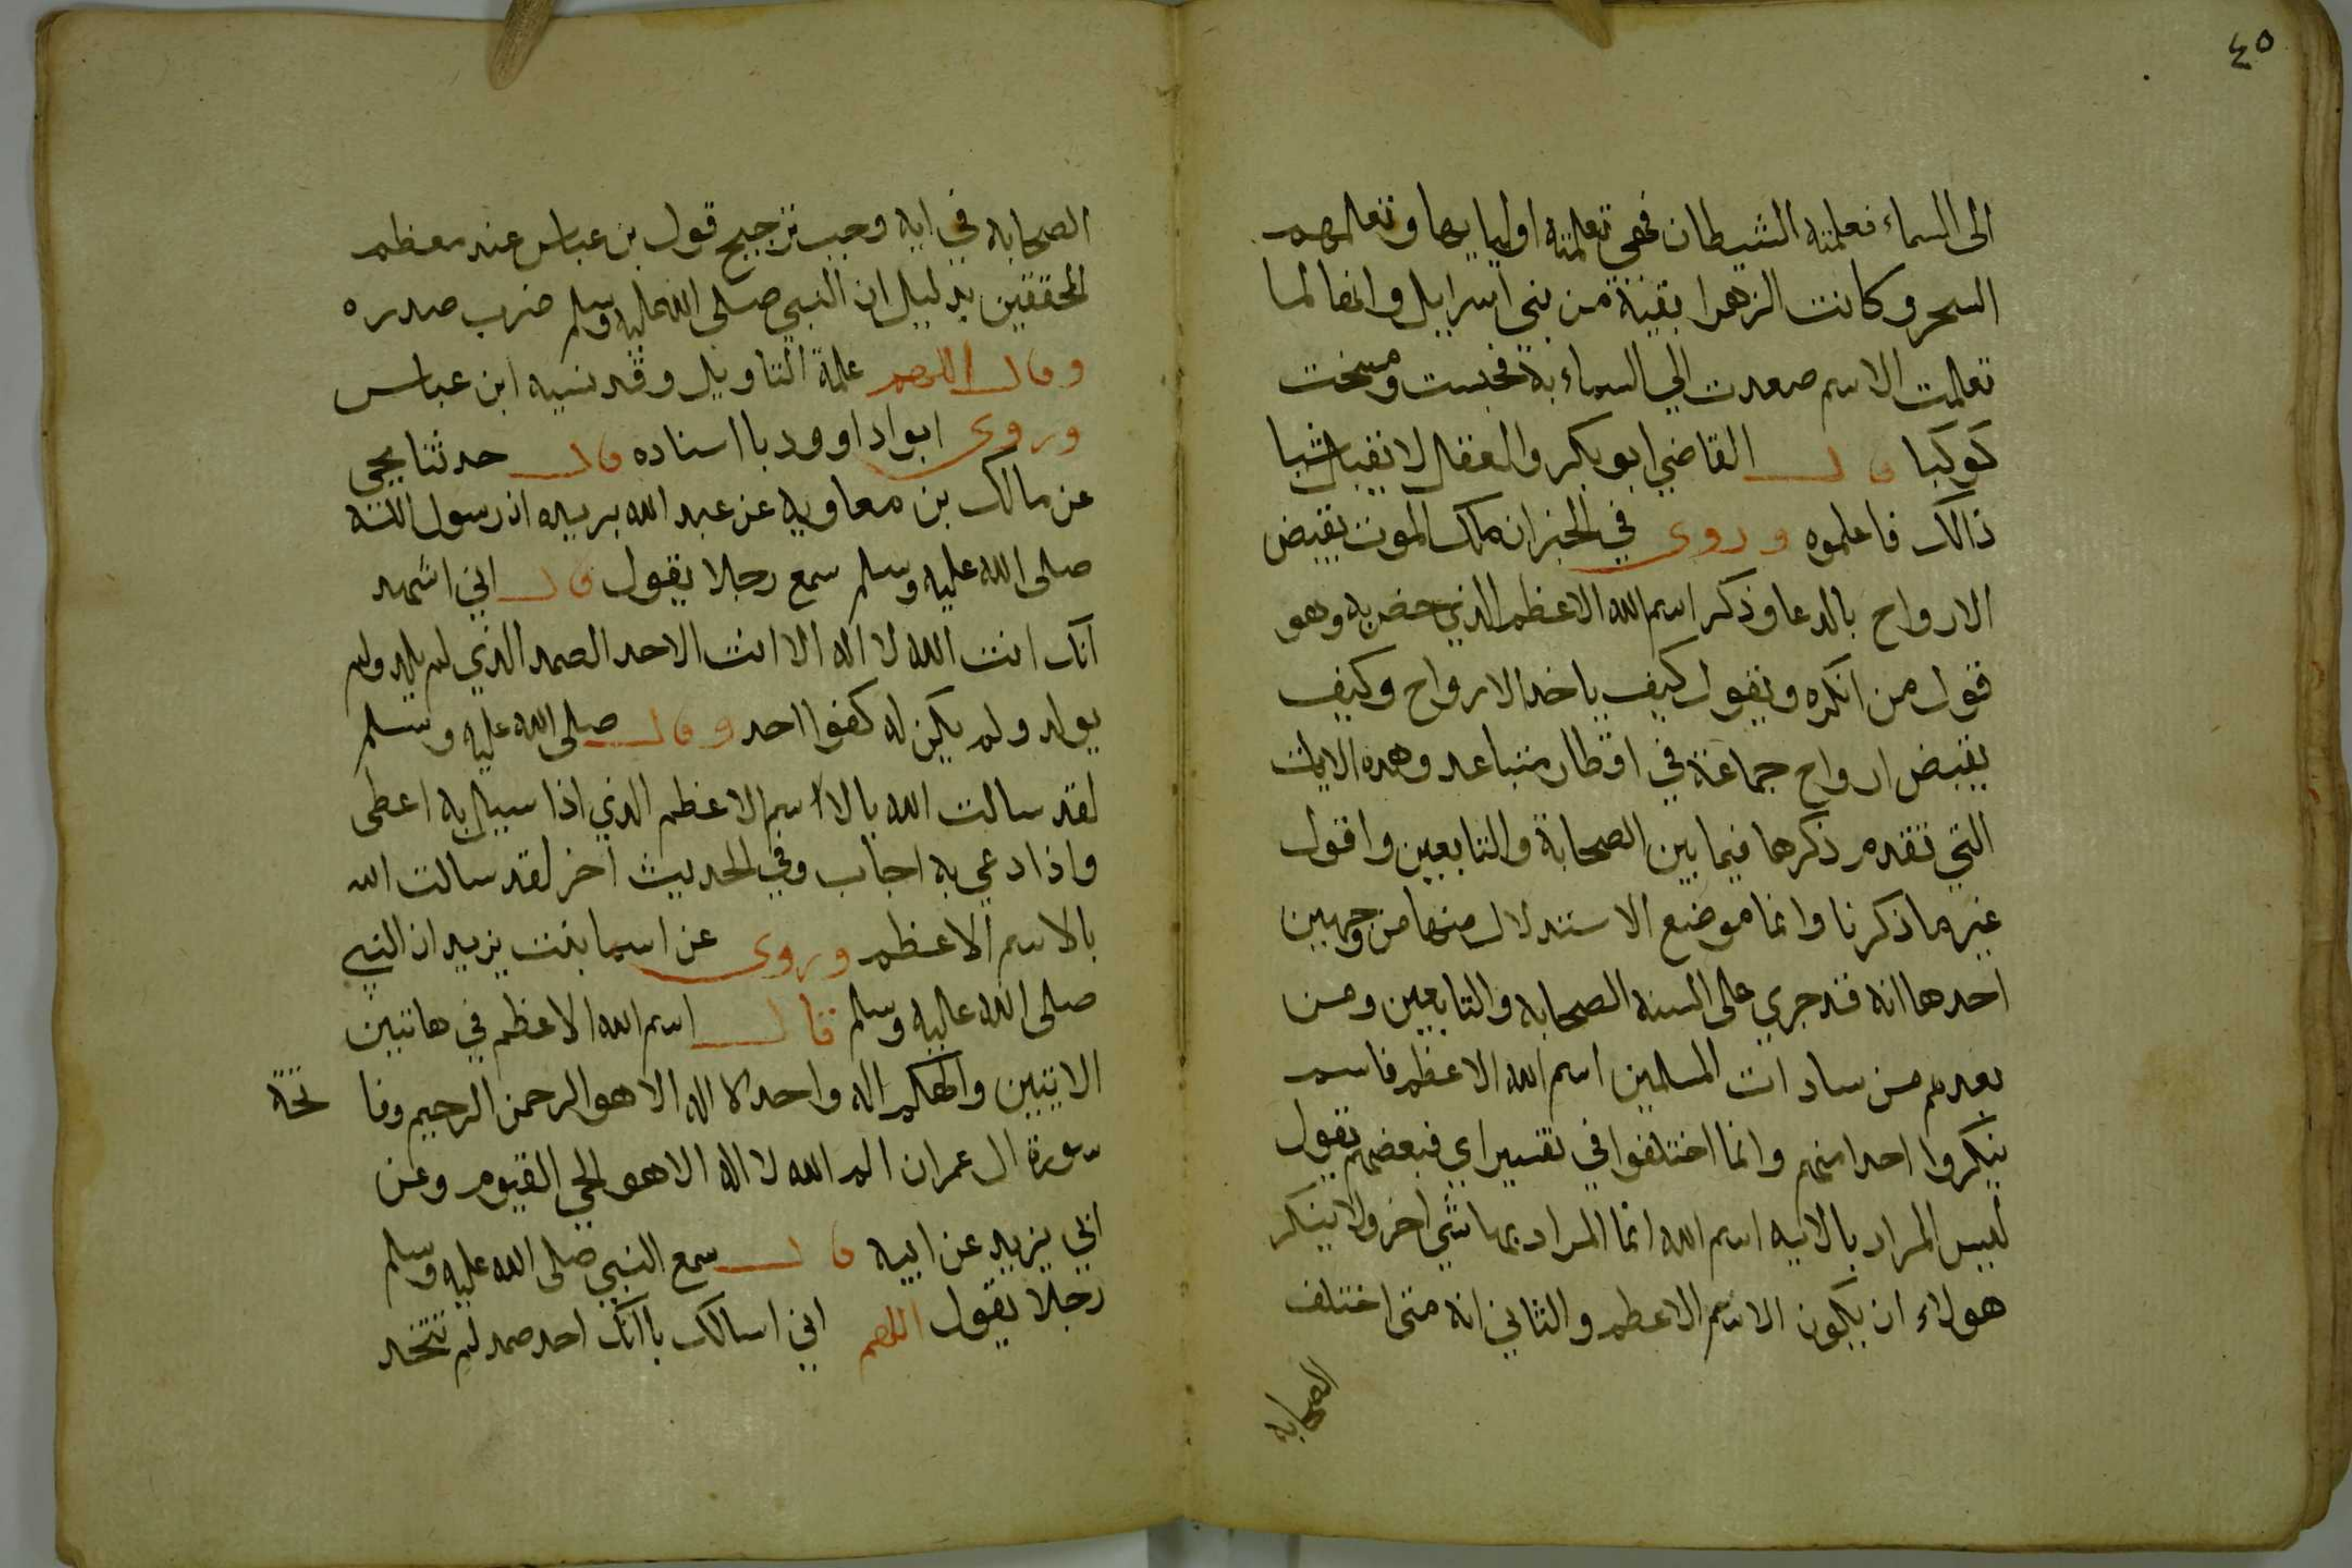 ٤٥
الى السماء فعلمته الشيطان فهي تعلمته اوليايها وتعلمهم
السحر وكانت الزهرا بقينة من بني اسرايل وانها لما
تعلمت الاسم صعدت الي السماء به فحبست ومسخت
كوكبا قال القاضي ابو بكر والعقل لا يقبل شيا
ذالك فاعلموه وروى في الخبر ان ملك الموت يقبض
الارواح بالدعا وذكر اسم الله الاعظم الذي خص به وهو
قول من انكره ويقول كيف ياخذ الارواح وكيف
يقبض ارواح جماعة في اقطار متباعد وهذه الايات
التي تقدم ذكرها فيما بين الصحابة والتابعين واقول
غير ما ذكرنا وانما موضع الاستدلال منها من وجهين
احدها انه قد جري على السنة الصحابه والتابعين ومن
بعدهم من سادات المسلمين اسم الله الاعظم فاسم
ينكروا احد منهم وانما اختلفوا في تفسير اي فبعضهم يقول
ليس المراد بالايه اسم الله انما المراد بها شي اخر ولا ينكر
هولاء ان يكون الاسم الاعظم والثاني انه متى اختلف
الصحابه
الصحابه في ايه وجب ترجيح قول بن عباس عند معظم
المحققين بدليل ان النبي صلى الله عليه وسلم ضرب صدره
وقال اللهم علمة التاويل وقد نسيه ابن عباس
وروى ابو داوود با اسناده قال حدثنا يحيى
عن مالك بن معاويه عن عبد الله بريده ان رسول الله
صلى الله عليه وسلم سمع رجلا يقول قال اني اشهد
انك انت الله لا اله الا انت الاحد الصمد الذي لم يلد ولم
يولد ولم يكن له كفوا احد وقال صلى الله عليه وسلم
لقد سالت الله بالااسم الاعظم الذي اذا سيل به اعطى
واذا دعي به اجاب وفي الحديث اخر لقد سالت الله
بالاسم الاعظم وروى عن اسما بنت يزيد ان النبي
صلى الله عليه وسلم قال اسم الله الاعظم في هاتين
الايتين والهكم اله واحد لا اله الا هو الرحمن الرحيم وفا تحة
سورة ال عمران الم الله لا اله الا هو الحي القيوم وعن
ابي يزيد عن ابيه قال سمع النبي صلى الله عليه وسلم
رجلا يقول اللهم اني اسالك با انك احد صمد لم تتخذ